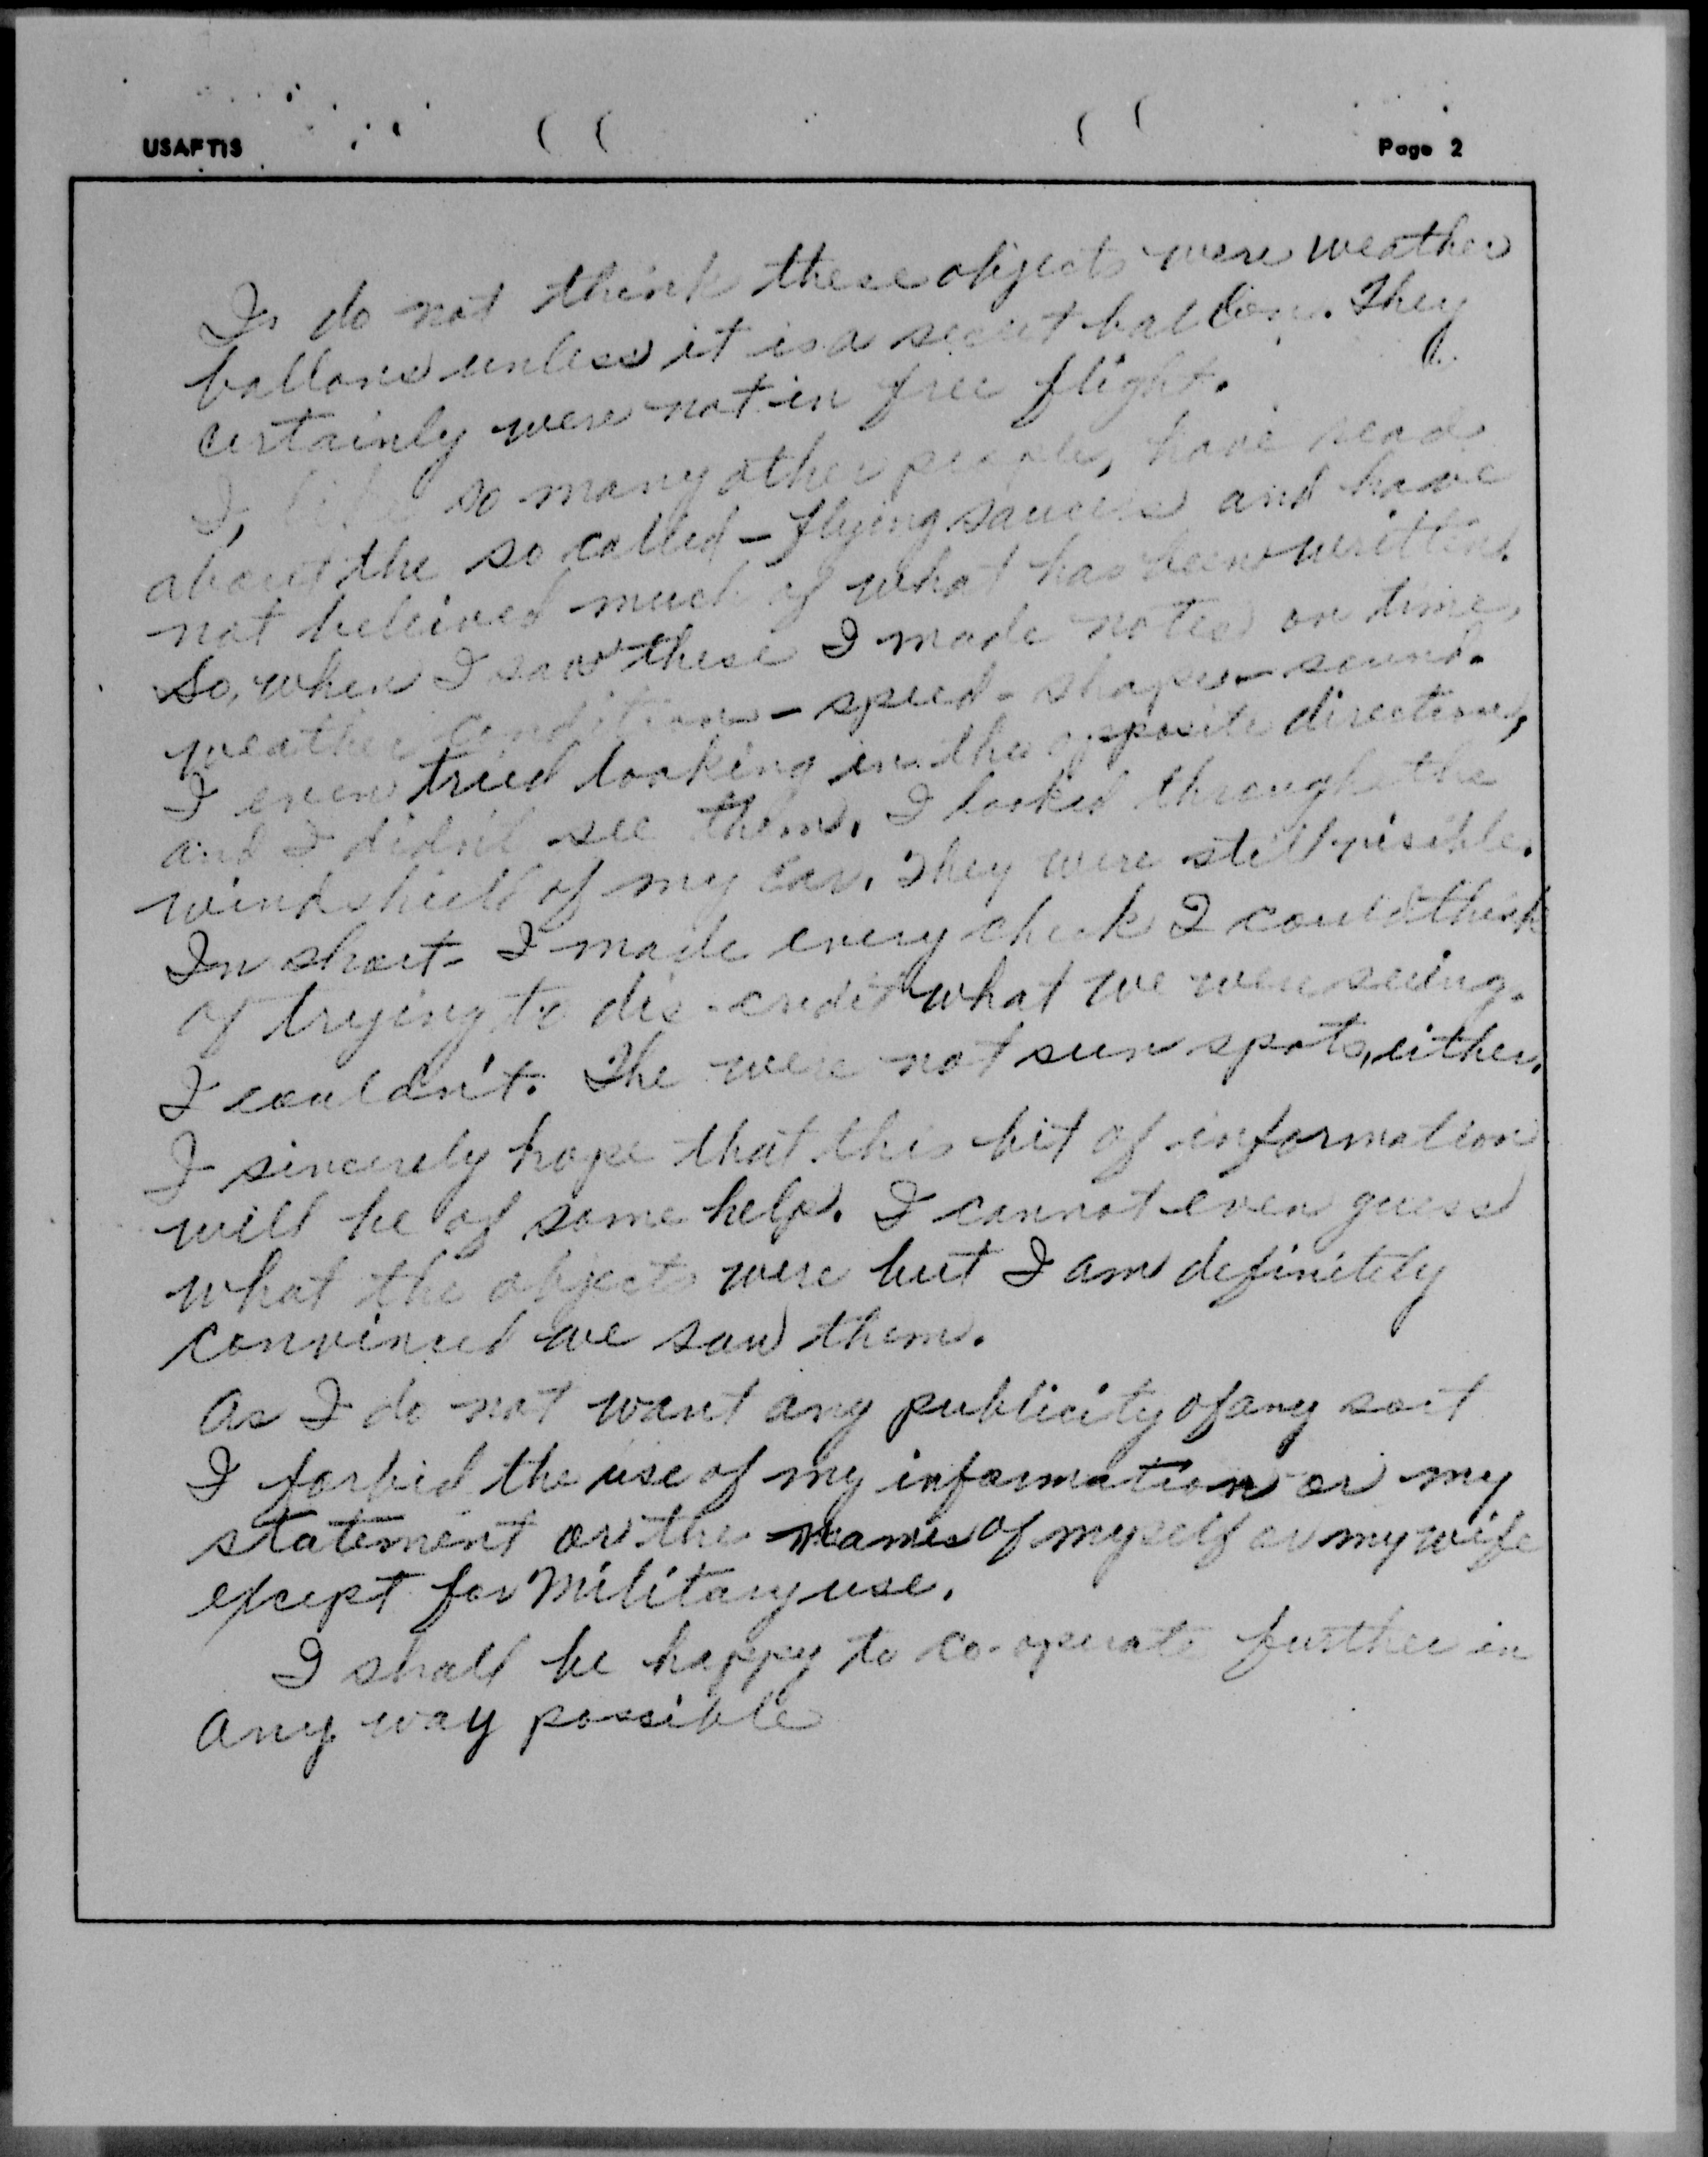 USAFTIS
Page 2
I do not think these objects were weather
ballons unless it is a secret ballon. They
certainly were not in free flight.
I, like so many other people, have read
about the so called - flying saucers and have
not believed much of what has been written.
So, when I saw these I made notes on time,
weather condition - speed - shape - sound.
I even tried looking in the opposite direction,
and I didn't see them. I looked through the
windshield of my car. They were still visible.
In short - I made every check I could think
of trying to dis-credit what we were seeing.
I couldn't. The were not sun spots, either.
I sincerely hope that this bit of information
will be of some help. I cannot even guess
what the objects were but I am definitely
convinced we saw them.
As I do not want any publicity of any sort
I forbid the use of my information or my
statement or the names of myself or my wife
except for Military use.
I shall be happy to co-operate further in
any way possible